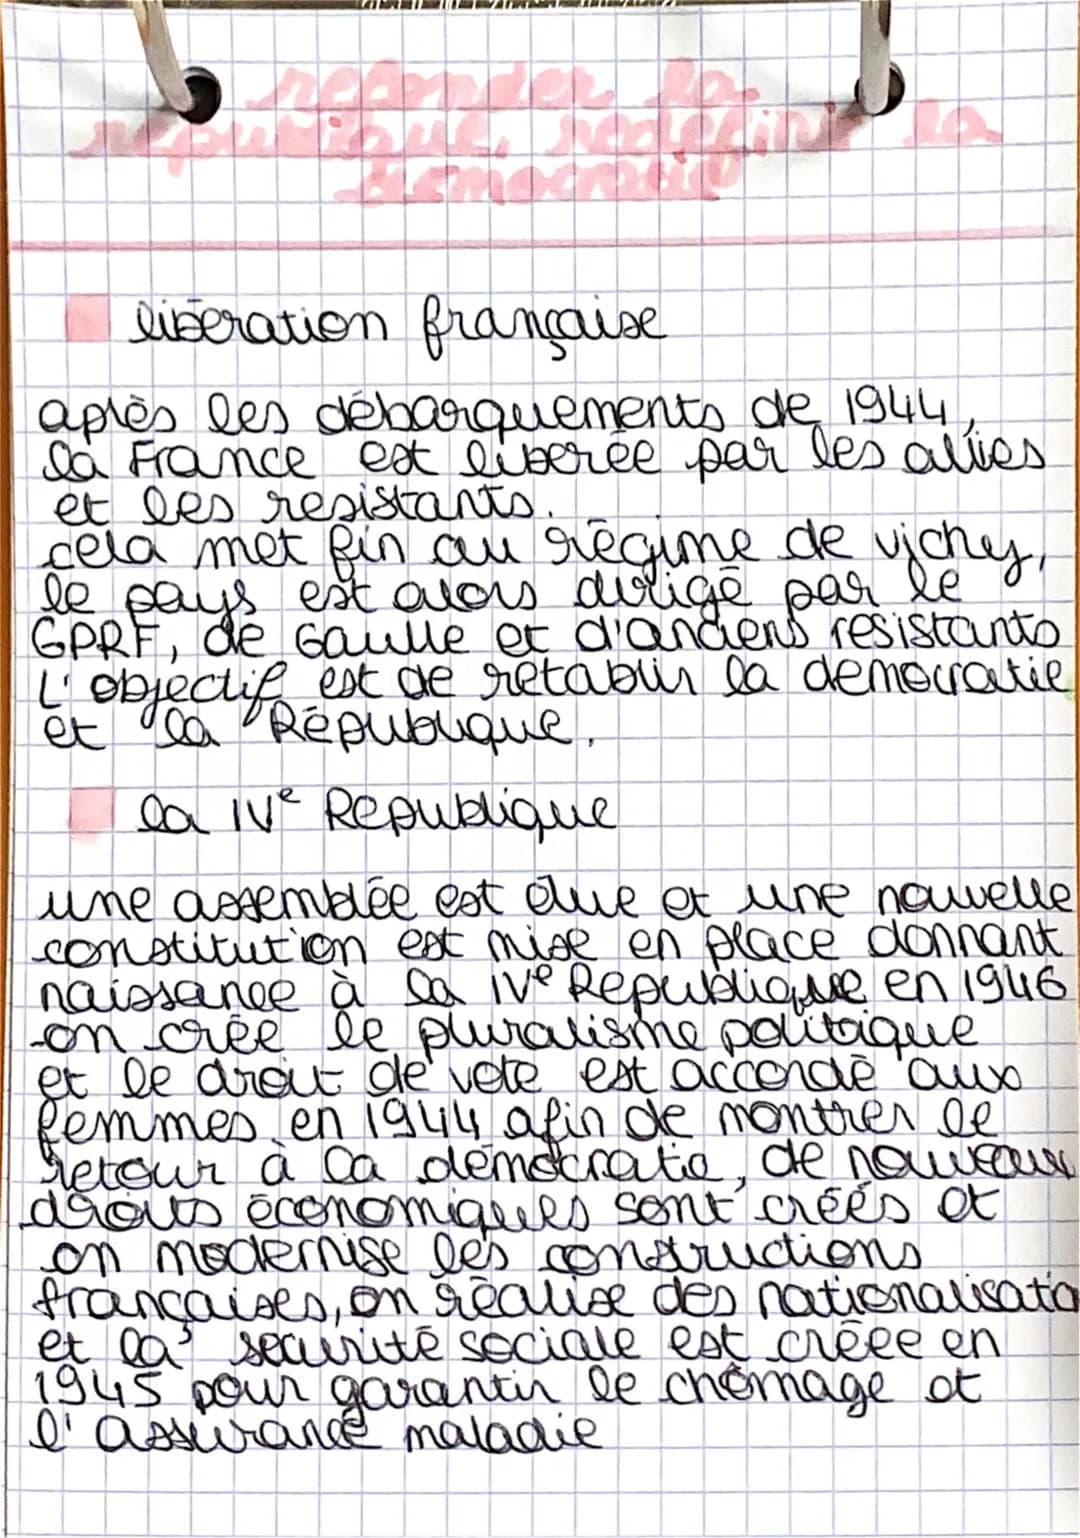 refonder la
république, redéfinir la
démocratie
libération française
après les débarquements de 1944,
la France est liberée par les alliés
et les resistants.
cela met fin au régime de vichy,
le pays est alors dirigé par le
GPRF, de Gaulle et d'anciens résistants
L'objectif est de rétablir la democratie
et la République.
la IVe Republique
une assemblée est élue et une nouvelle
constitution est mise en place donnant
naissance à la IVe Republique en 1946
on crée le pluralisme politique
et le droit de vote est accordé aux
femmes en 1944 afin de montrer le
retour à la démocratie, de nouveaux
droits économiques sont créés et
on modernise les constructions
françaises, on réalise des nationalisatio
et la sécurité sociale est créée en
1945 pour garantir le chômage et
l'assurance maladie